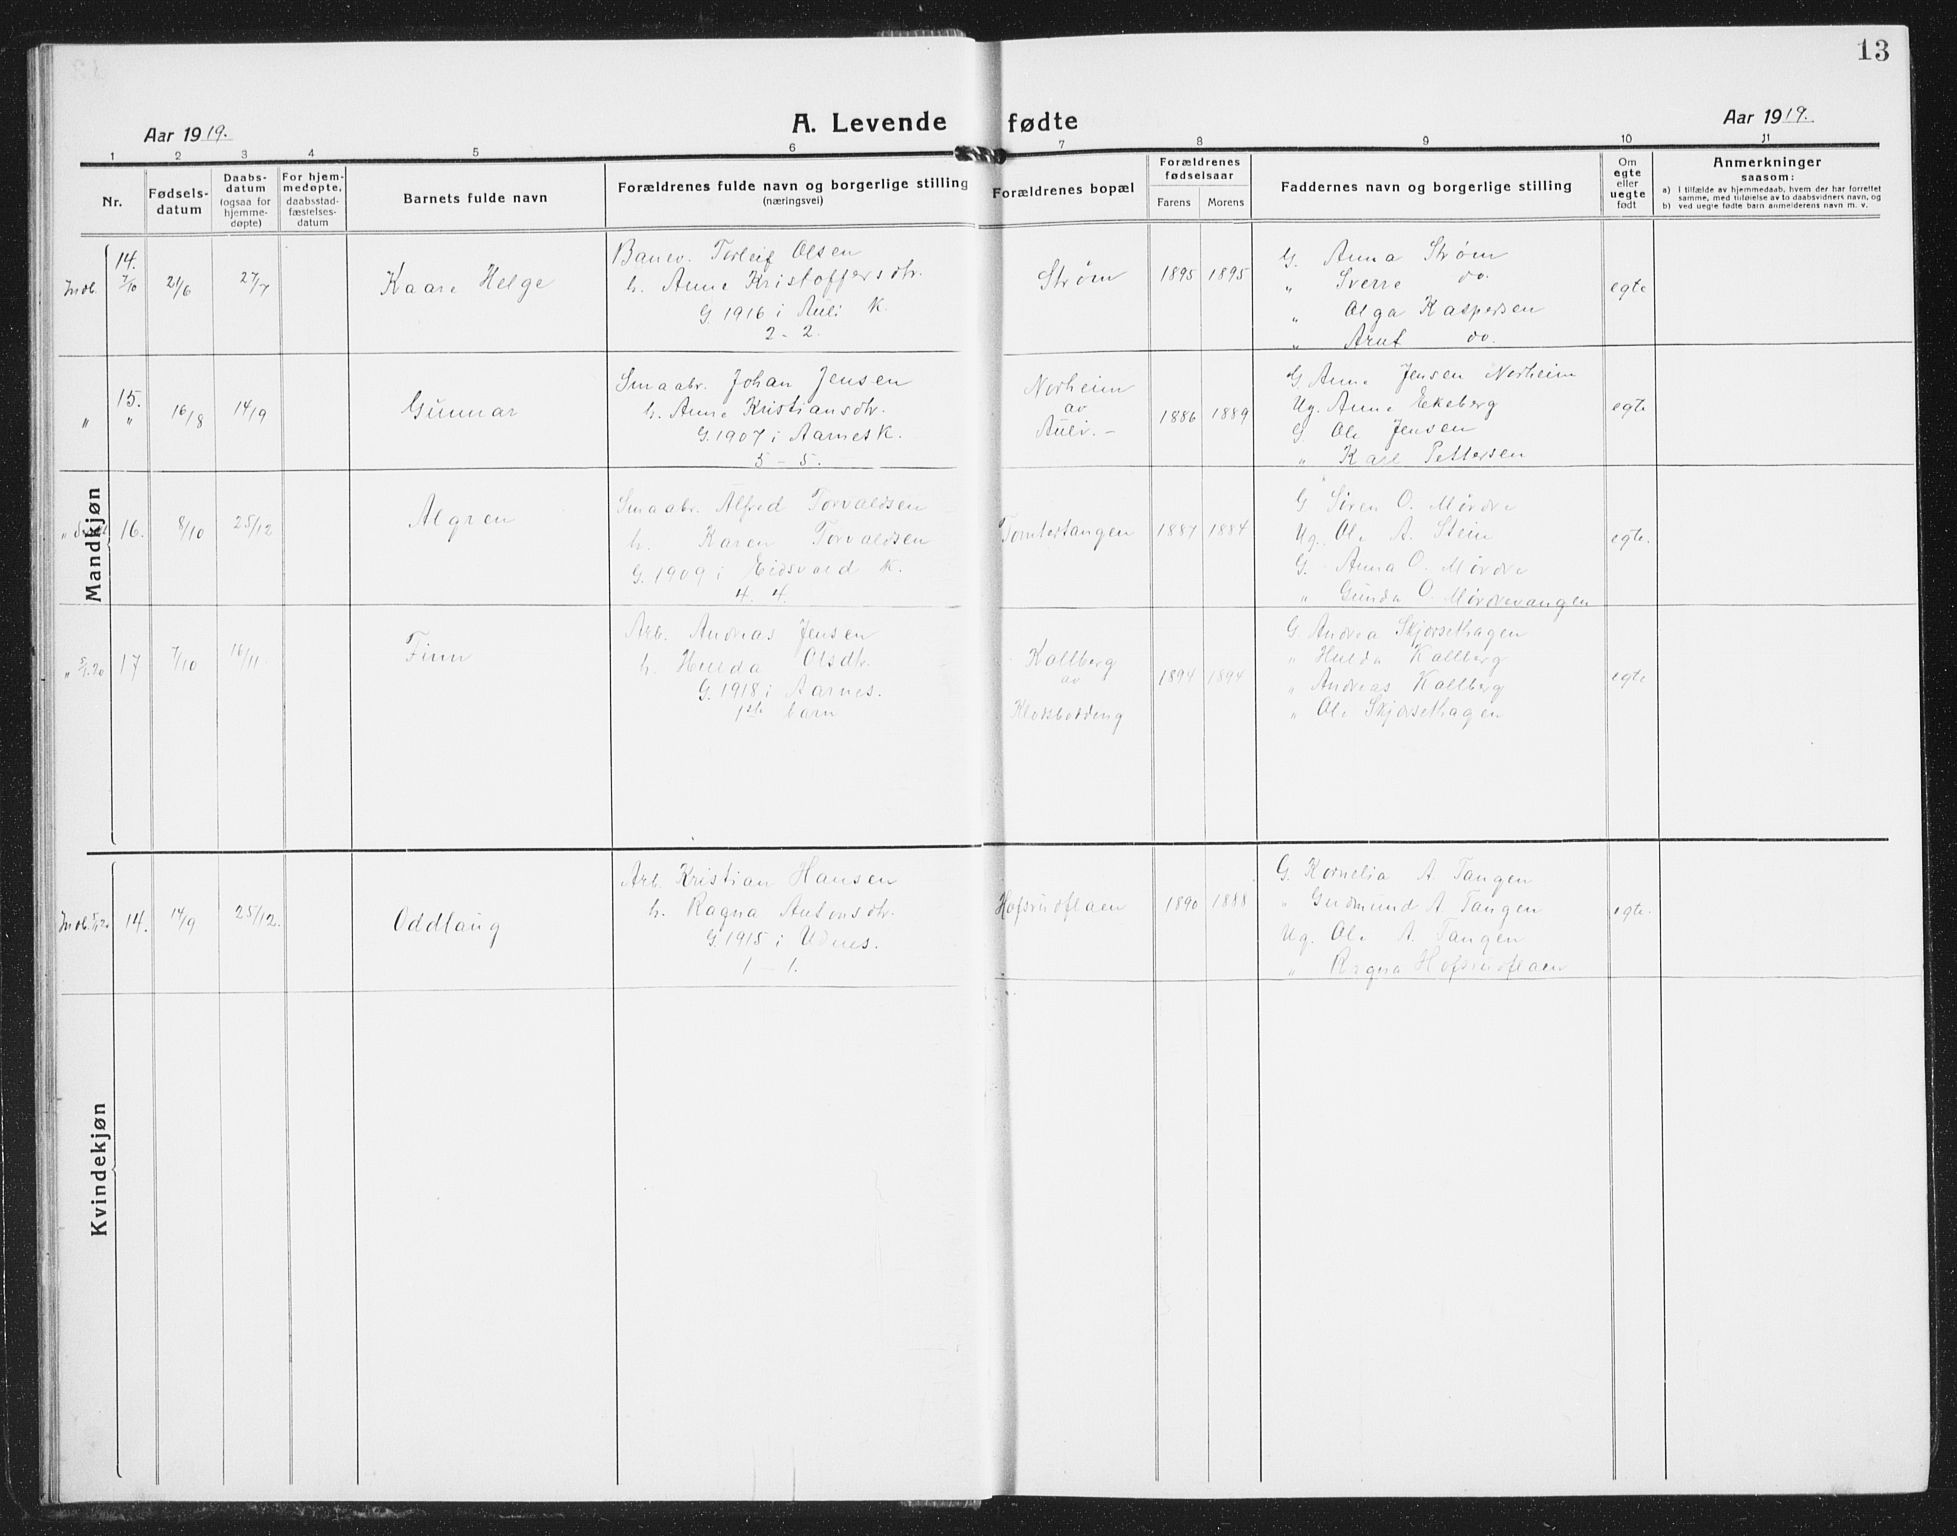 13
Aar 1919.
A. Levende fødte
Aar 1919.
1 2 3 4 5 6 7 8 9 10 11
Nr.
Fødsels-
datum
Daabs-
datum
(ogsaa for
hjemme-
døpte)
For hjem-
medøpte,
daabsstad-
fæstelses-
datum
Barnets fulde navn
Forældrenes fulde navn og borgerlige stilling
(næringsvei)
Forældrenes bopæl
Forældrenes
fødselsaar
Farens Morens
Faddernes navn og borgerlige stilling
Om
egte
eller
uegte
født
Anmerkninger
saasom:
a) I tilfælde av hjemmedaab, hvem der har forrettet
samme, med tilføielse av to daabsvidners navn, og
b) ved uegte fødte barn anmelderens navn m. v.
Mandkjøn
Indb. 14. 7/10
21/6
27/7
Kaare Helge
Banev. Torleif Olsen
h. Anne Kristoffersdtr.
G. 1916 i Auli K.
2 - 2.
Strøm
1895 1895
G. Anna Strøm
" Sverre do.
" Olga Kaspersen
" Arnt do.
egte
" 15. "
16/8
14/9
Gunnar
Smaabr. Johan Jensen
h. Anne Kristiansdtr.
G. 1907 i Aarnes K.
5 - 5.
Norheim
av
Auli. -
1886 1889
G Anne Jensen Norheim
Ug. Anne Ekeberg
G Ole Jensen
" Karl Pettersen
egte
" 16.
8/10
25/12
Algren
Smaabr. Alfred Torvaldsen
h. Karen Torvaldsen
G. 1909 i Eidsvold K.
4. 4.
Tomtertangen
1887 1884
G Søren O. Mørdre
Ug. Ole A. Stein
G. Anna O. Mørdre
" Gunda O. Mørdrevangen
egte.
" 5/1.20 17
7/10
16/11.
Finn
Arb. Andreas Jensen
h. Hulda Olsdtr.
G. 1918 i Aarnes.
1ste barn
Kallberg
av
1894 1894
G. Andrea Skjørsethagen
" Hulda Kallberg
" Andreas Kallberg
" Ole Skjørsethagen
egte
Kvindekjøn
Indb. 14.
14/9
25/12.
Oddlaug
Arb. Kristian Hansen
h. Ragna Antonsdtr.
G. 1915 i Udnes.
1 - 1.
Hofsrudflaen
1890 1888
G. Kornelia A Tangen
" Gudmund A Tangen
Ug. Ole A. Tangen
" Ragna Hofsrudflaen
egte.